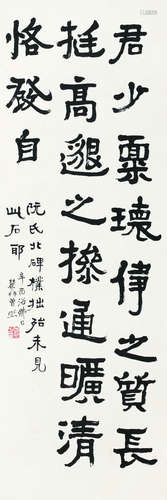 君少稟瓌偉之質長
挺高邈之摻通曠清
恪發自
阮氏北碑樸拙殆未見
此石耶
辛酉浴佛日